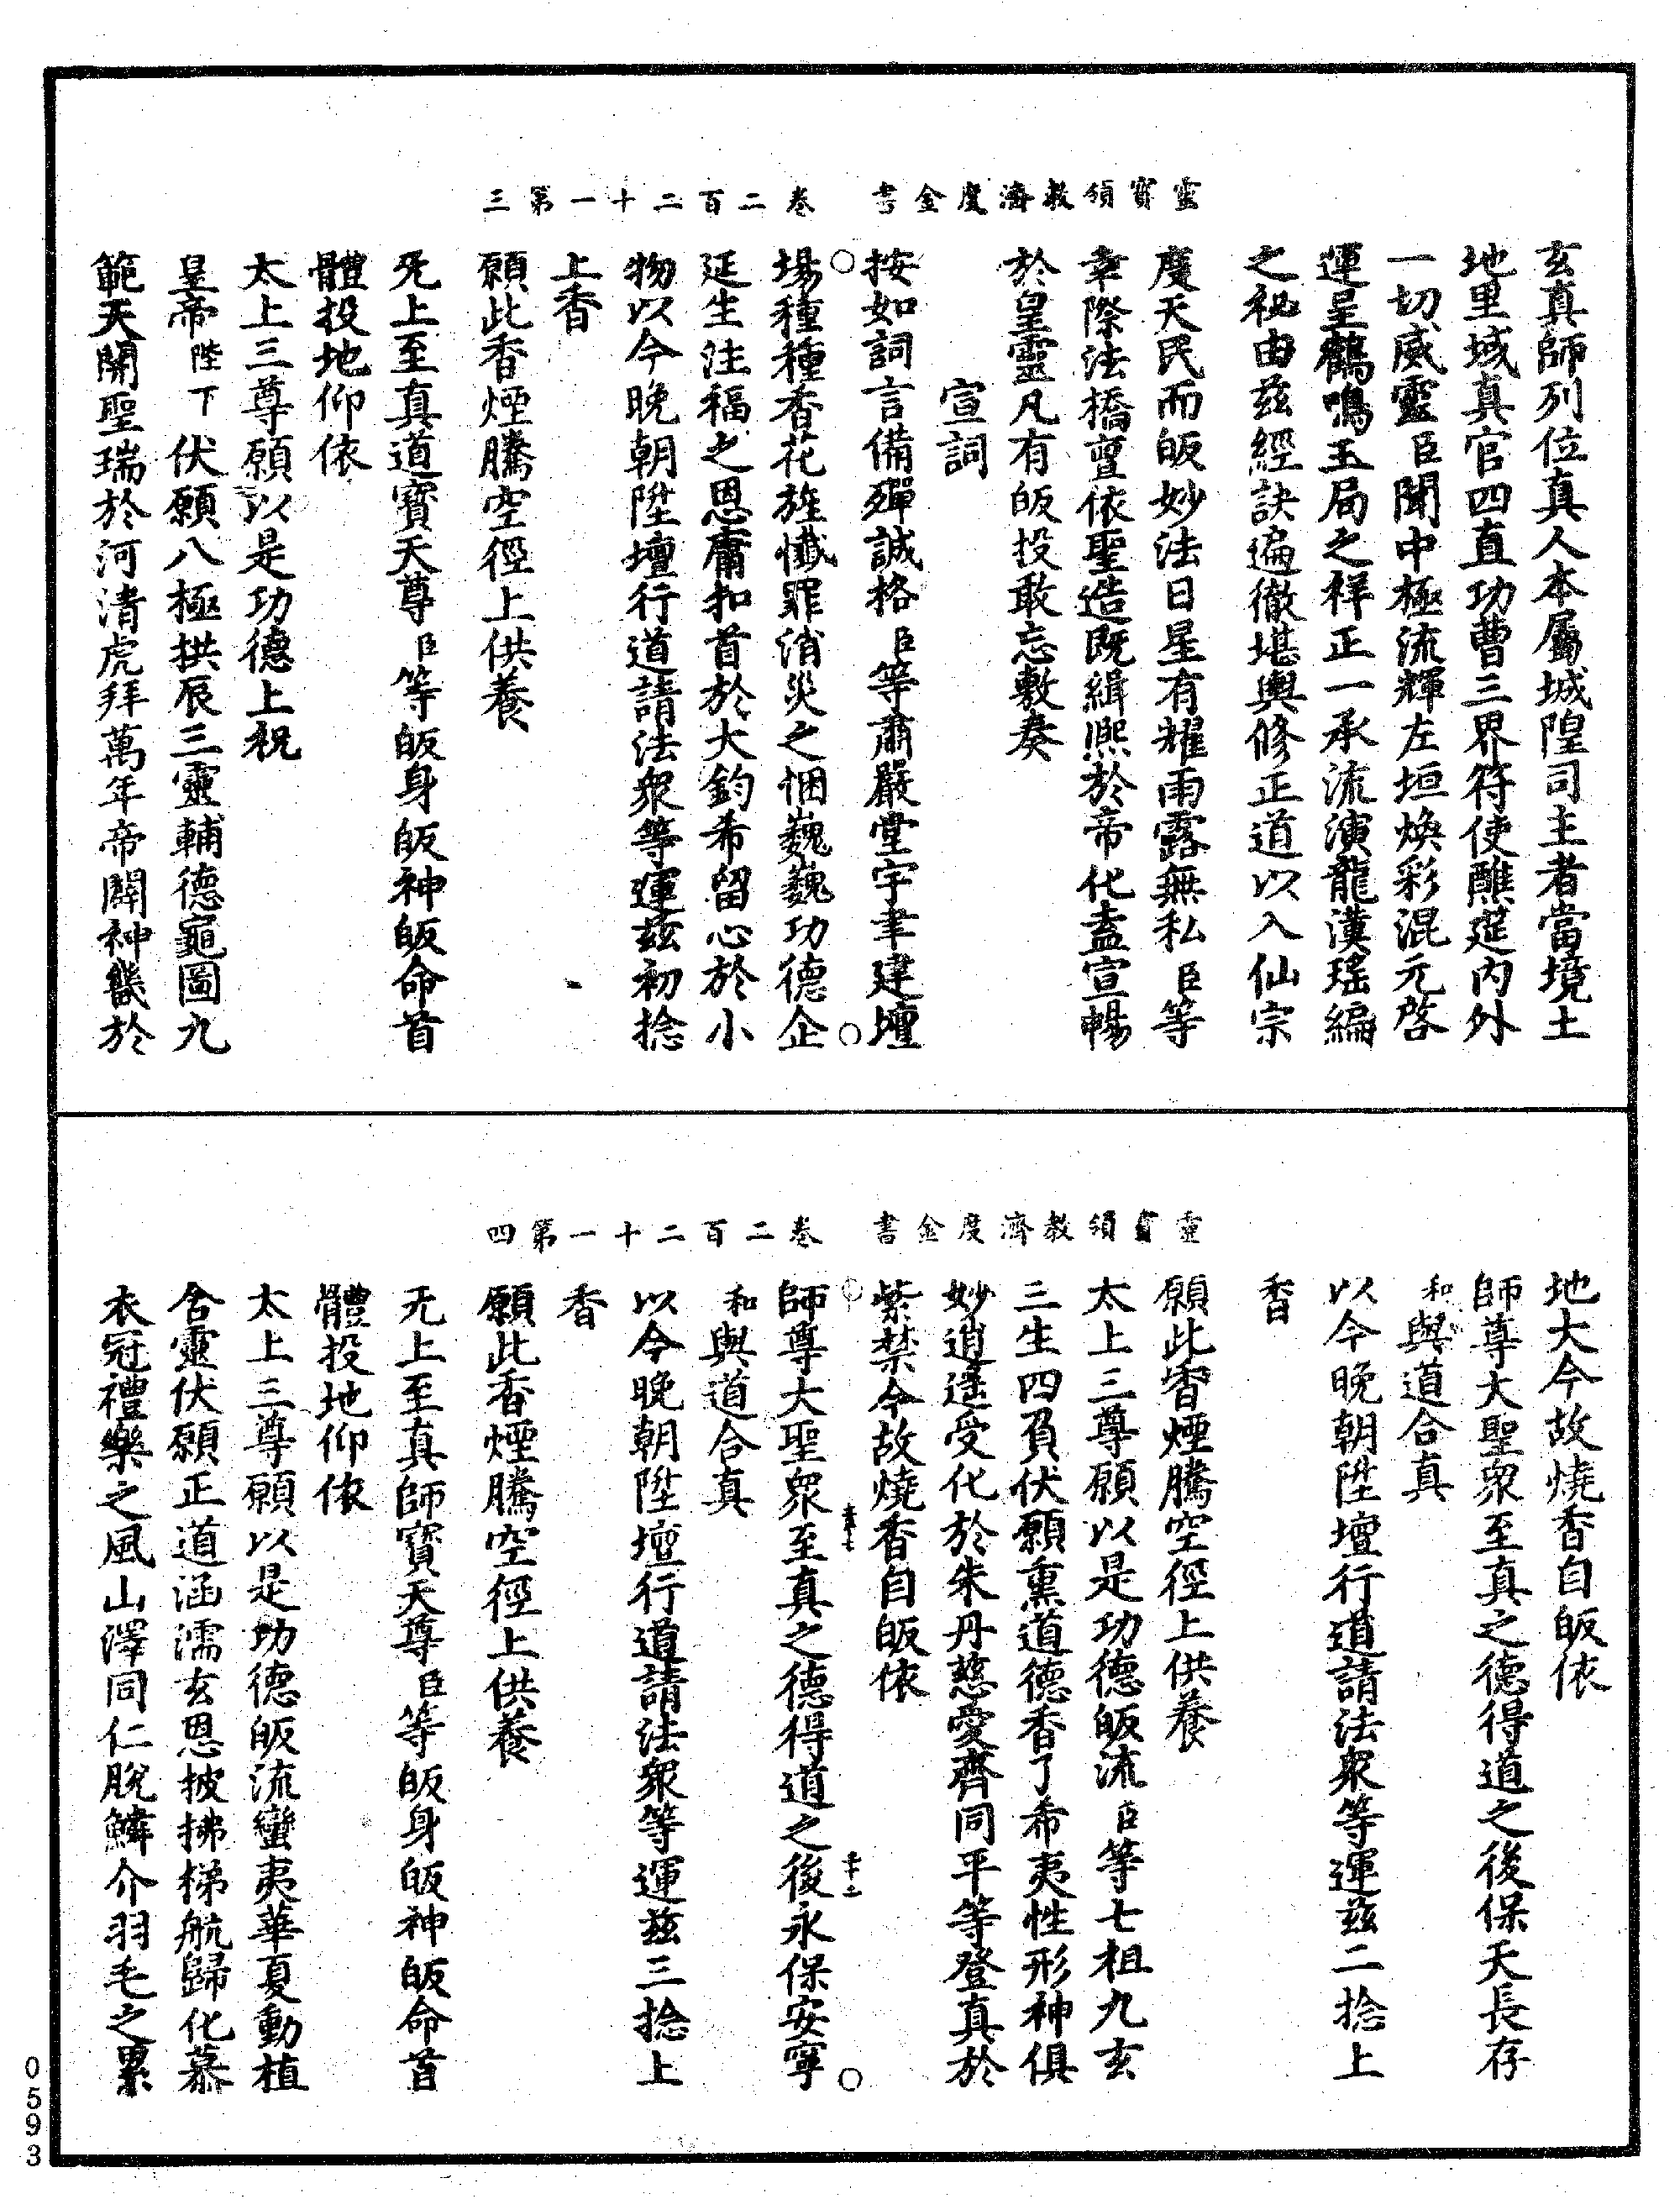 靈寶領教濟度金書　卷二百二十一第三
玄真師列位真人本屬城隍司主者當境土
地里域真官四直功曹三界符使醮筵內外
一切威靈臣聞中極流輝左垣煥彩混元啓
運呈鶴鳴玉局之祥正一承流演龍漢瑤編
之祕由茲經訣遍徹堪輿修正道以入仙宗
度天民而皈妙法日星有耀雨露無私臣等
幸際法橋亶依聖造既緝熙於帝化盍宣暢
於皇靈凡有皈投敢忘敷奏
宣詞
按如詞言備殫誠格臣等肅嚴堂宇聿建壇
場種種香花旌懺罪消災之悃巍巍功德企
延生注福之恩庸扣首於大鈞希留心於小
物以今晚朝陞壇行道請法衆等運茲初捻
上香
願此香煙騰空徑上供養
旡上至真道寶天尊臣等皈身皈神皈命首
體投地仰依
太上三尊願以是功德上祝
皇帝陛下伏願八極拱辰三靈輔德龜圖九
範天開聖瑞於河清虎拜萬年帝闢神畿於
靈寶領教濟度金書　卷二百二十一第四
地大今故燒香自皈依
師尊大聖衆至真之德得道之後保天長存
和與道合真
以今晚朝陞壇行道請法衆等運茲二捻上
香
願此香煙騰空徑上供養
太上三尊願以是功德皈流臣等七祖九玄
三生四負伏願熏道德香了希夷性形神俱
妙逍遥受化於朱丹慈愛齊同平等登真於
紫禁今故燒香自皈依
師尊大聖衆至真之德得道之後永保安寧
和與道合真
以今晚朝陞壇行道請法衆等運茲三捻上
香
願此香煙騰空徑上供養
无上至真師寶天尊臣等皈身皈神皈命首
體投地仰依
太上三尊願以是功德皈流蠻夷華夏動植
含靈伏願正道涵濡玄恩披拂梯航歸化慕
衣冠禮樂之風山澤同仁脫鱗介羽毛之累
0593